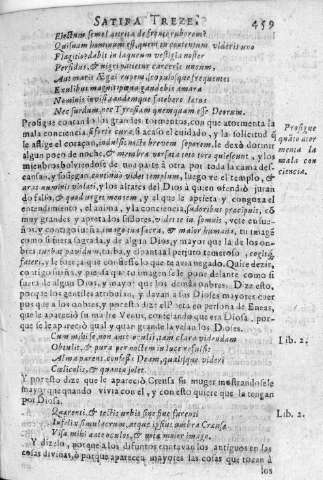 SATIRA TREZE. 459
Eiectum semel attrita de fronte ruborem?
Quisnam hominum est, quem tu contentum videris uno
Flagitio? dabit in laqueum vestigia noster
Perfidus, & nigri patietur carceris uncum,
Aut maris Ægæi rupem, scopulosque frequentes
Exulibus magnis: pœna gaudebis amara
Nominis invisi, tandemque fatebere lætus
Nec surdum, nec Tyresian quemquam esse Deorum.
Prosigue contando los grandes tormentos, con que atormenta la
mala conciencia, si forte cura, si acaso el cuidado, y la solicitud q̃
le aflige el coraçan, indulsit noctis brevem soporem, le dexò dormir
algun poco de noche, & membra versata toto toro quiescunt, y los
miembros bolviendose de una parte à otra por toda la cama des-
cansan, y sosiegan, continuò videt templum, luego ve el templo, &
aras numinis violati, y los altares del Dios à quien ofendiò juran
do falso, & quod urget mentem, y al que le aprieta y congoxa el
entendimiento, el anima, y la conciencia, sudoribus præcipuis, cõ
muy grandes y apretados sudores, videt te in somnis, vete en sue-
ños, y contigo sueña, imago tua sacra, & maior humana, tu imagẽ
como si fuera sagrada, y de algun Dios, y mayor que la de los on-
bres turbat pavidum, turba, y espanta al perjuro temeroso, cogitq̃
fateri, y le fuerça à que confiesse lo que te avia negado. Quire dezir,
contigo sueña, y piensa que tu imagen se le pone delante como si
fuera de algun Dios, y mayor que los demàs onbres. Dize esto,
porque los gentiles atribuian, y davan a sus Dioses mayores cuer
pos que a los onbres, y por esto dize el Poeta en persona de Eneas,
que le apareciò su madre Venus, conociendo que era Diosa, por-
que se le apareciò qual y quan grande la velan los Dioses.
Cum mihi se, non ante oculis, tam clara videndam
Obtulit, & pura per noctem in luce refulsit
Alma parens, confessa Deam, qualisque videri
Cælicolis, & quanta solet.
Y por esto dize que le apareciò Creusa su muger mostrandosele
mayor que quando vivia con el, y con esto quiere que la tengan
por Diosa.
Quærenti, & tectis urbis sine fine furenti
Infelix simulacrum, atque ipsius umbra Creusæ
Visa mihi ante oculos, & nota maior imago.
Y dizelo, porque a los difuntos contavan los antiguos en las
cosas divinas, ò porque aparecen mayores las cosas que tocan à
los
Prosigue
quãto ator
menta la
mala con
ciencia.
Lib. 2.
Lib. 2.